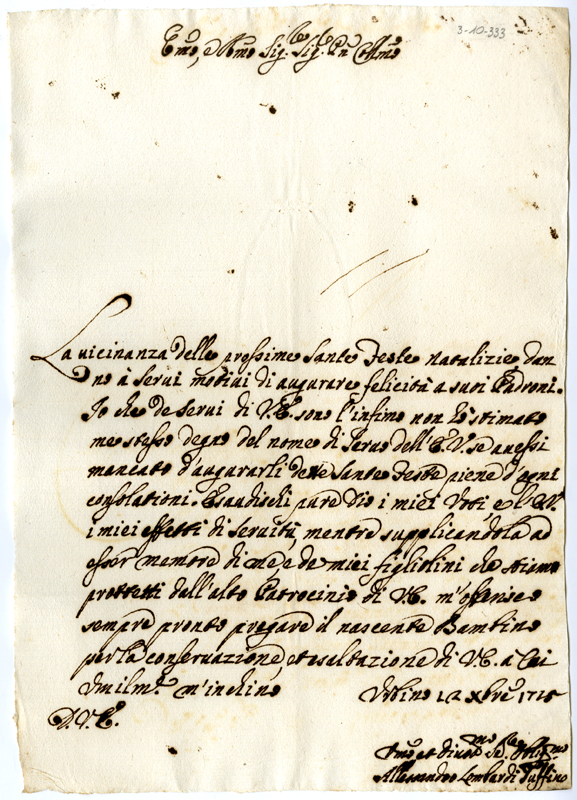 3-10-333
Emo, e Rmo Sig.re Sig.re Pne Colmo
La vicinanza delle prossime Sante Feste natalizie dan
no à Servi motivi di augurare felicità a suoi Padroni.
Io che de Servi di V.E. sono l'infimo non hò stimato
me stesso degno del nome di Servo dell'E.V. se avessi
mancato d'augurarli dette Sante Feste piene d'ogni
consolationi. Esaudischi pure Dio i miei Voti, e l'E.V.
i miei effetti di Servitù, mentre supplicandola ad
esser memore di me e de miei figliolini che stiamo
protetti dall'alto Patrocinio di V.E. m'offerisco
sempre pronto pregare il nascente Bambino
per la conservazione, et esaltazione di V.E. a Cui
Umilmte m'inchino Urbino 12 Xbre 1715
D.V.E.
Umo et Divotmo Se.re Obligmo
Allessandro Lombardi